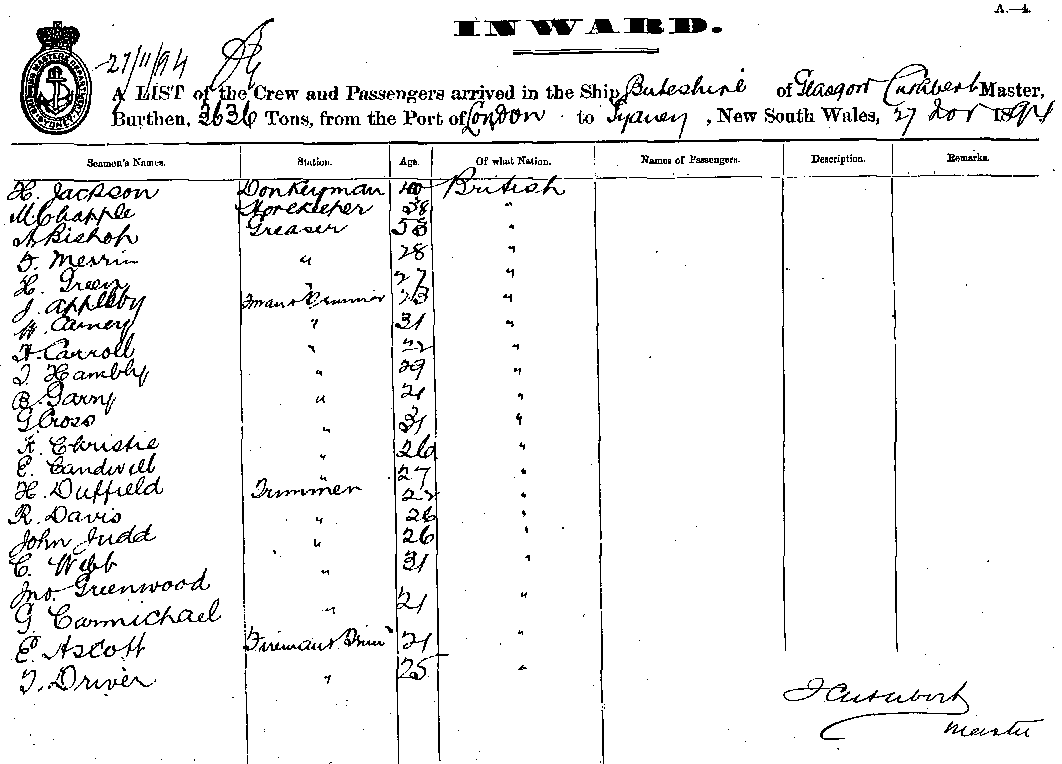 A.—4.
INWARD.
27/11/94
A LIST of the Crew and Passengers arrived in the Ship Buteshire of Glasgow Cuthbert Master,
Burthen, 3636 Tons, from the Port of London to Sydney, New South Wales, 27 Nov 1894
Seamen's Names. Station. Age. Of what Nation. Names of Passengers. Description. Remarks.
H. Jackson Donkeyman 40 British
M Chapple Storekeeper 38 "
A Bishop Greaser 53 "
F. Merrin " 28 "
H. Green 27 "
J. Appleby 23 "
W. Carney " 31 "
H. Carroll " 22 "
T. Hambly " 29 "
B. Garny " 21 "
G Cross " 31 "
F. Christie " 26 "
E. Candwell " 27 "
H. Duffield Trimmer 22 "
R. Davis " 26 "
John Judd " 26 "
C. Webb " 31 "
Jno. Greenwood
G Carmichael " 21 "
E. Ascott Fireman & Trimr 21 "
T. Driver " 25 "
J Cuthbert
Master